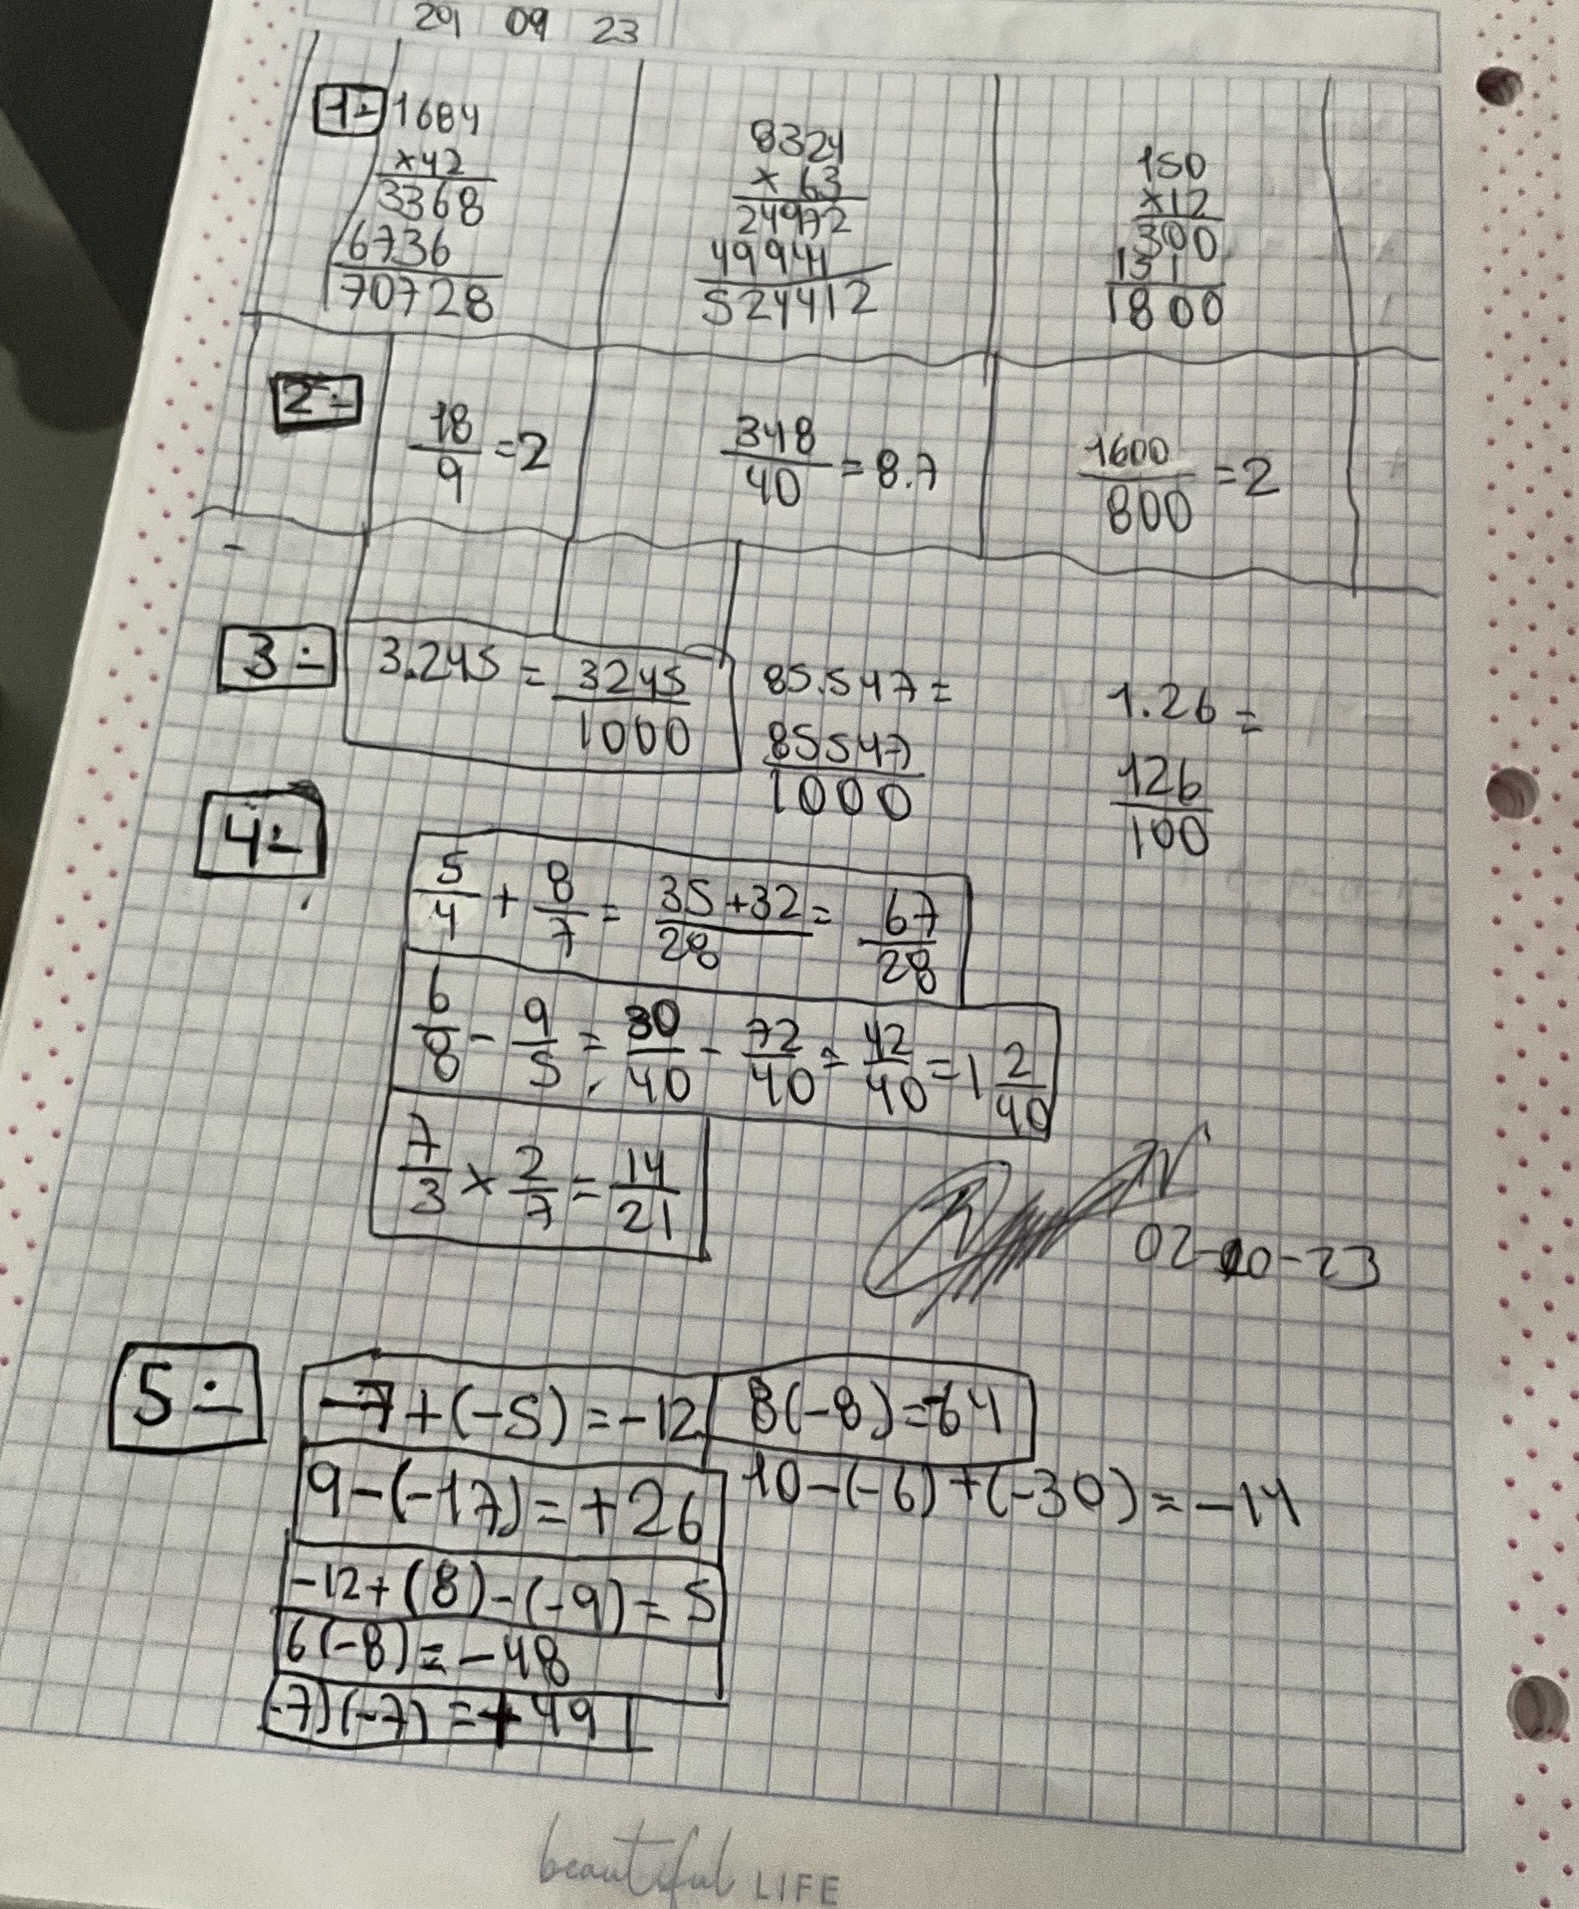 29 09 23
1:- 1684
x42
3368
6736
70728
8324
x 63
24972
49944
524412
150
x12
300
1800
2:- 18/9 =2
348/40 = 8.7
1600/800 =2
3:- 3.245 = 3245/1000
85.547 =
85547/1000
1.26 =
126/100
4:-
5/4 + 8/7 = 35+32/28 = 67/28
6/8 - 9/5 = 30/40 - 72/40 = 42/40 = 1 2/40
7/3 x 2/7 = 14/21
02-10-23
5:- -7+(-5)=-12 8(-8)=-64
9-(-17)=+26 10-(-6)+(-30)=-14
-12+(8)-(-9)=5
6(-8)=-48
-7)(-7)=+49
beautiful LIFE